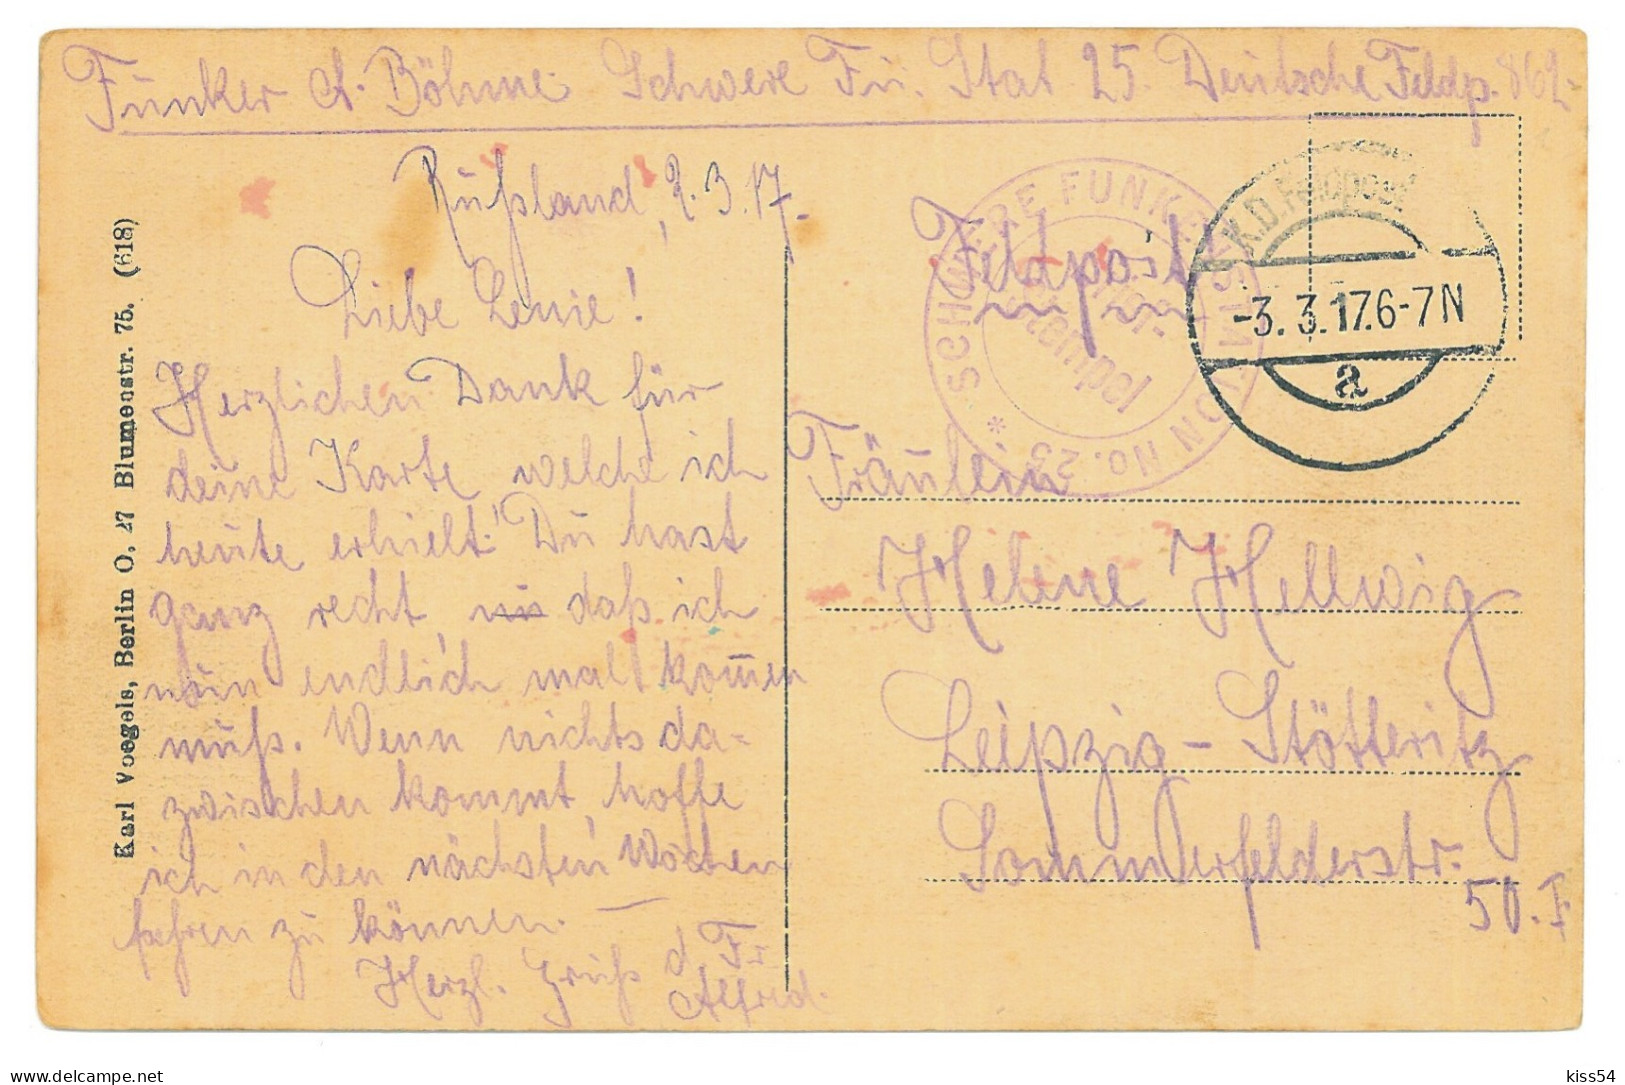 Funker A. Böhme. Schwere Fu. Stat 25. Deutsche Feldp. 862.
Rußland, 2.3.17.
Liebe Lenie!
Herzlichen Dank für
deine Karte welche ich
heute erhielt! Du hast
ganz recht daß ich
nun endlich mal kom̄en
muß. Wenn nichts da=
zwischen kommt, hoffe
ich in den nächsten Wochen
fahren zu können. —
Herzl. Gruß d. Fr.
Alfred.
Karl Voegels, Berlin O. 27 Blumenstr. 75. (618)
Feldpost
SCHWERE FUNKENSTATION No. 25 *
Brief-
stempel
K.D. Feldpost
-3.3.17.6-7N
a
Fräulein
Helene Hellwig
Leipzig-Stötteritz
Sommerfelderstr.
50. I.
delcampe.net
kiss54